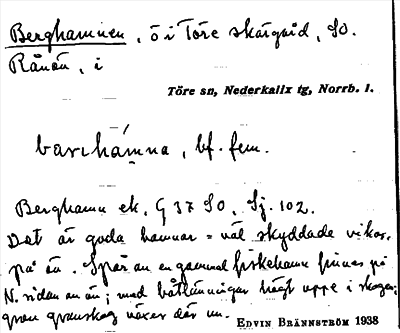 Berghamnen, ö i Töre skärgård, SO.
Rånön, i
Töre sn, Nederkalix tg, Norrb. l.
bærᴣhámna, bf. fem.
Berghamn ek. G 37 SO, Sj. 102.
Det är goda hamnar = väl skyddade vikar,
på ön. Spår av en gammal fiskehamn finnes på
N. sidan av ön; med båtlänningar högt uppe i skogen;
grov granskog växer där nu.
EDVIN BRÄNNSTRÖM 1938